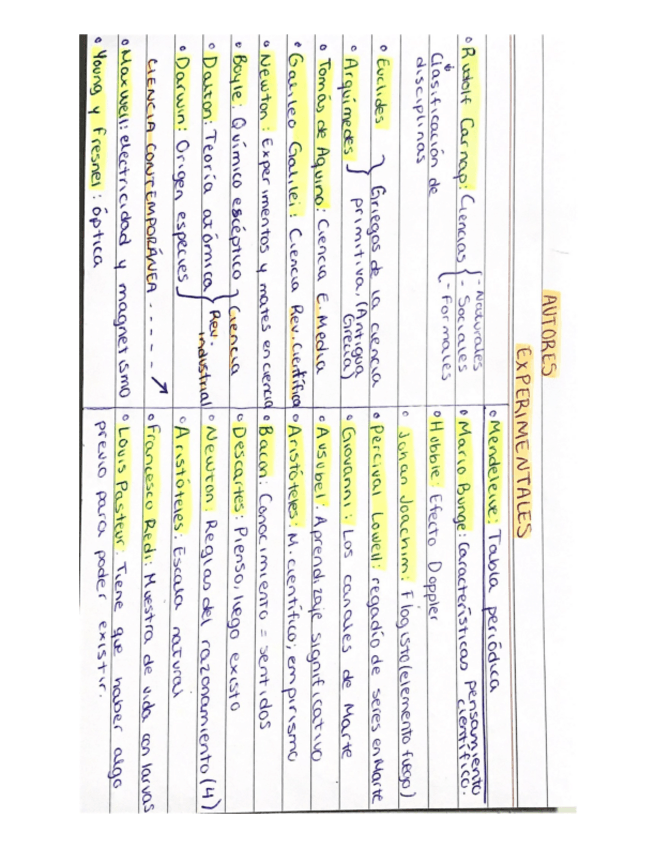 AUTORES
EXPERIMENTALES
• Rudolf Carnap: Ciencias { - Naturales
- Sociales
- Formales
Clasificación de
disciplinas
• Euclides } Griegos de la ciencia
• Arquímedes primitiva, (Antigua
Grecia)
• Tomás de Aquino: Ciencia E. Media
• Galileo Galilei: Ciencia Rev. Científica
• Newton: Experimentos y mates en ciencia
• Boyle: Químico escéptico } Ciencia
• Dalton: Teoría atómica Rev.
industrial
• Darwin: Origen especies
CIENCIA CONTEMPORÁNEA - - - - - ↗
• Maxwell: electricidad y magnetismo
• Young y Fresnel: óptica
• Mendeleive: Tabla periódica
• Mario Bunge: características pensamiento
científico.
• Hubble: Efecto Doppler
• Johan Joachim: Flogisto (elemento fuego)
• Percival Lowell: regadío de seres en Marte
• Giovanni: Los canales de Marte
• Ausubel: Aprendizaje significativo
• Aristóteles: M. científico; empirismo
• Bacon: Conocimiento = sentidos
• Descartes: Pienso, luego existo
• Newton: Reglas del razonamiento (4)
• Aristóteles: Escala natural
• Francesco Redi: Muestra de vida con larvas
• Louis Pasteur: Tiene que haber algo
previo para poder existir.